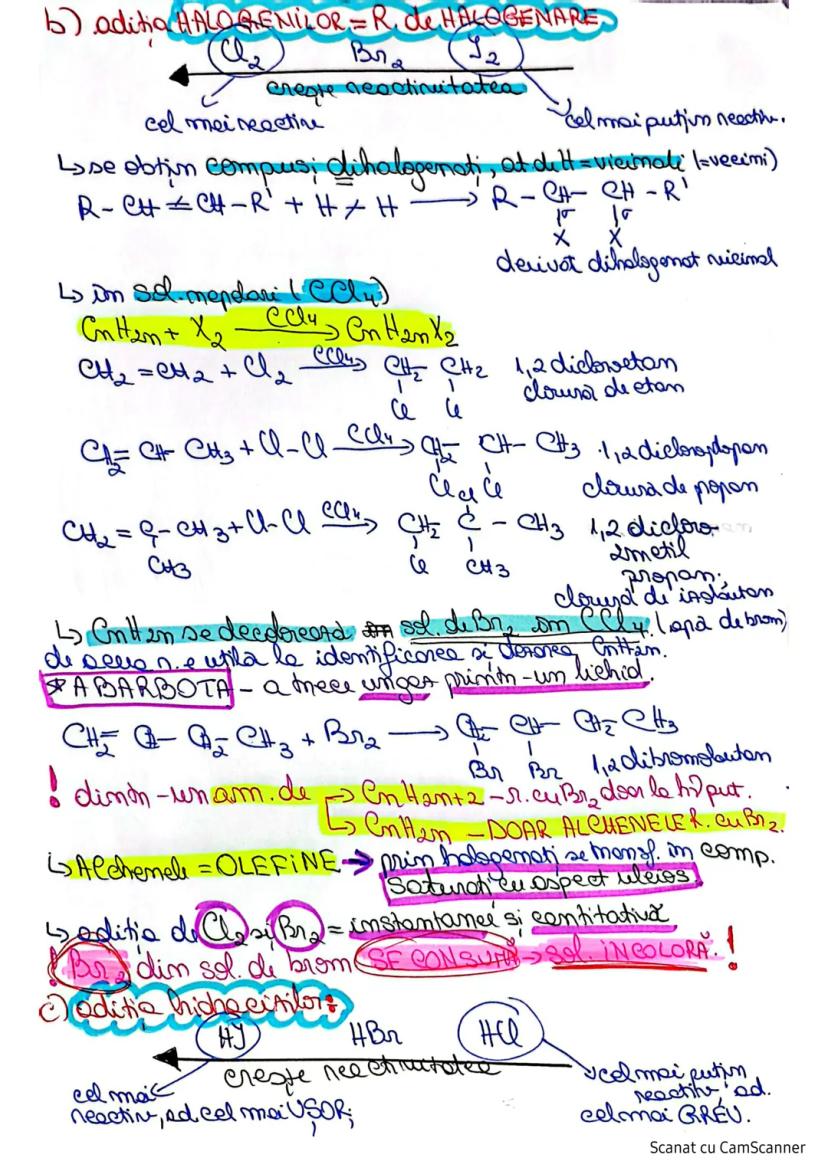 b) adiția HALOGENILOR = R. de HALOGENARE
Cl2 Br2 I2
crește reactivitatea
cel mai reactiv cel mai puțin reactiv.
↳ se obțin compuși dihalogenați, at de H = vicinali (=vecini)
R - CH = CH - R' + H - H → R - CH - CH - R'
X X
derivat dihalogenat vicinal
↳ în sol. nepolari (CCl4)
CnH2n + X2 CCl4→ CnH2nX2
CH2 = CH2 + Cl2 CCl4→ CH2 CH2 1,2 dicloroetan
Cl Cl clorură de etan
CH2= CH- CH3 + Cl-Cl CCl4→ CH2- CH- CH3 1,2 dicloropropan
Cl Cl clorură de propan
Cl
CH2 = C - CH3 + Cl-Cl CCl4→ CH2 C - CH3 1,2 dicloro-
CH3 Cl CH3 2metil
propan;
clorură de izobutan
↳ CnH2n se decolorează sol. de Br2 în CCl4 (apă de brom)
de aceea r. e utilă la identificarea și dozarea CnH2n.
*A BARBOTA - a trece un gaz printr-un lichid.
CH2= CH- CH2- CH3 + Br2 → CH2- CH- CH2- CH3
Br Br 1,2 dibromobutan
! dintr-un am. de → CnH2n+2 - r. cu Br2 doar la hν put.
↳ CnH2n - DOAR ALCHENELE R. cu Br2.
↳ Alchenele = OLEFINE → prin halogenați se transf. în comp.
saturați cu aspect uleios.
↳ adiția de Cl2 și Br2 = instantanei și cantitativă
! Br2 din sol. de brom SE CONSUMĂ → sol. INCOLORĂ. !
c) adiția hidracizilor:
HI HBr HCl
crește reactivitatea
cel mai cel mai puțin
reactiv, ad. cel mai UȘOR; reactiv, ad.
cel mai GREU.
Scanat cu CamScanner